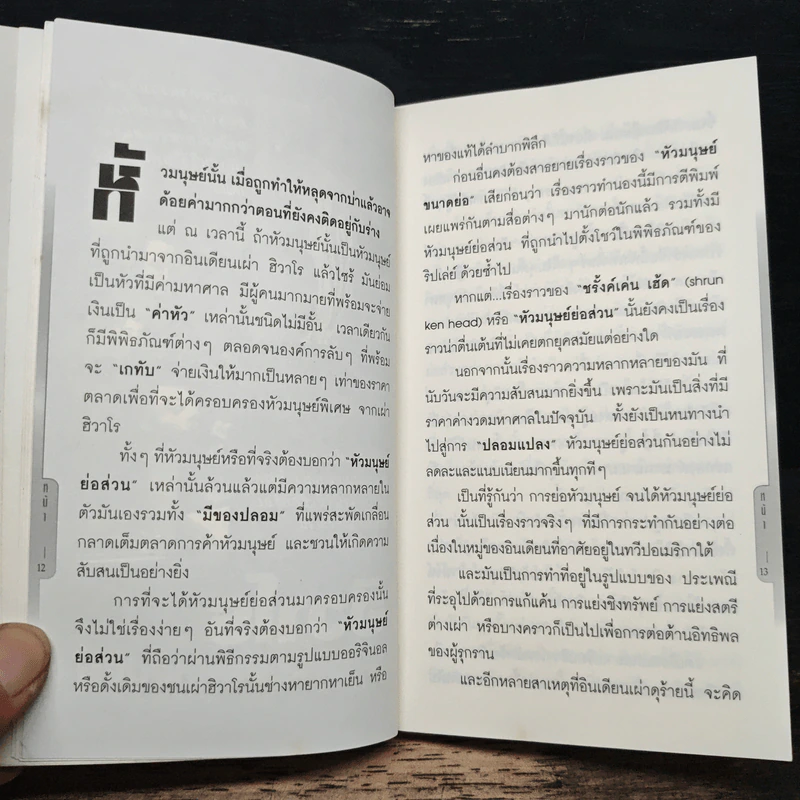 หัวมนุษย์นั้น เมื่อถูกทำให้หลุดจากบ่าแล้วอาจ
ด้อยค่ามากกว่าตอนที่ยังคงติดอยู่กับร่าง
แต่ ณ เวลานี้ ถ้าหัวมนุษย์นั้นเป็นหัวมนุษย์
ที่ถูกนำมาจากอินเดียนเผ่า ฮิวาโร แล้วไซร้ มันย่อม
เป็นหัวที่มีค่ามหาศาล มีผู้คนมากมายที่พร้อมจะจ่าย
เงินเป็น "ค่าหัว" เหล่านั้นชนิดไม่มีอั้น เวลาเดียวกัน
ก็มีพิพิธภัณฑ์ต่างๆ ตลอดจนองค์การลับๆ ที่พร้อม
จะ "เกทับ" จ่ายเงินให้มากเป็นหลายๆ เท่าของราคา
ตลาดเพื่อที่จะได้ครอบครองหัวมนุษย์พิเศษ จากเผ่า
ฮิวาโร
ทั้งๆ ที่หัวมนุษย์หรือที่จริงต้องบอกว่า "หัวมนุษย์
ย่อส่วน" เหล่านั้นล้วนแล้วแต่มีความหลากหลายใน
ตัวมันเองรวมทั้ง "มีของปลอม" ที่แพร่สะพัดเกลื่อน
กลาดเต็มตลาดการค้าหัวมนุษย์ และชวนให้เกิดความ
สับสนเป็นอย่างยิ่ง
การที่จะได้หัวมนุษย์ย่อส่วนมาครอบครองนั้น
จึงไม่ใช่เรื่องง่ายๆ อันที่จริงต้องบอกว่า "หัวมนุษย์
ย่อส่วน" ที่ถือว่าผ่านพิธีกรรมตามรูปแบบออริจินอล
หรือดั้งเดิมของชนเผ่าฮิวาโรนั้นช่างหายากหาเย็น หรือ
หน้า
12
หาของแท้ได้ลำบากพิลึก
ก่อนอื่นคงต้องสาธยายเรื่องราวของ "หัวมนุษย์
ขนาดย่อ" เสียก่อนว่า เรื่องราวทำนองนี้มีการตีพิมพ์
เผยแพร่กันตามสื่อต่างๆ มานักต่อนักแล้ว รวมทั้งมี
หัวมนุษย์ย่อส่วน ที่ถูกนำไปตั้งโชว์ในพิพิธภัณฑ์ของ
ริปเล่ย์ ด้วยซ้ำไป
หากแต่...เรื่องราวของ "ชรั้งค์เค่น เฮ้ด" (shrun
ken head) หรือ "หัวมนุษย์ย่อส่วน" นั้นยังคงเป็นเรื่อง
ราวน่าตื่นเต้นที่ไม่เคยตกยุคสมัยแต่อย่างใด
นอกจากนั้นเรื่องราวความหลากหลายของมัน ที่
นับวันจะมีความสับสนมากยิ่งขึ้น เพราะมันเป็นสิ่งที่มี
ราคาค่างวดมหาศาลในปัจจุบัน ทั้งยังเป็นหนทางนำ
ไปสู่การ "ปลอมแปลง" หัวมนุษย์ย่อส่วนกันอย่างไม่
ลดละและแนบเนียนมากขึ้นทุกทีๆ
เป็นที่รู้กันว่า การย่อหัวมนุษย์ จนได้หัวมนุษย์ย่อ
ส่วน นั้นเป็นเรื่องราวจริงๆ ที่มีการกระทำกันอย่างต่อ
เนื่องในหมู่ของอินเดียนที่อาศัยอยู่ในทวีปอเมริกาใต้
และมันเป็นการทำที่อยู่ในรูปแบบของ ประเพณี
ที่ระอุไปด้วยการแก้แค้น การแย่งชิงทรัพย์ การแย่งสตรี
ต่างเผ่า หรือบางคราวก็เป็นไปเพื่อการต่อต้านอิทธิพล
ของผู้รุกราน
และอีกหลายสาเหตุที่อินเดียนเผ่าดุร้ายนี้ จะคิด
หน้า
13